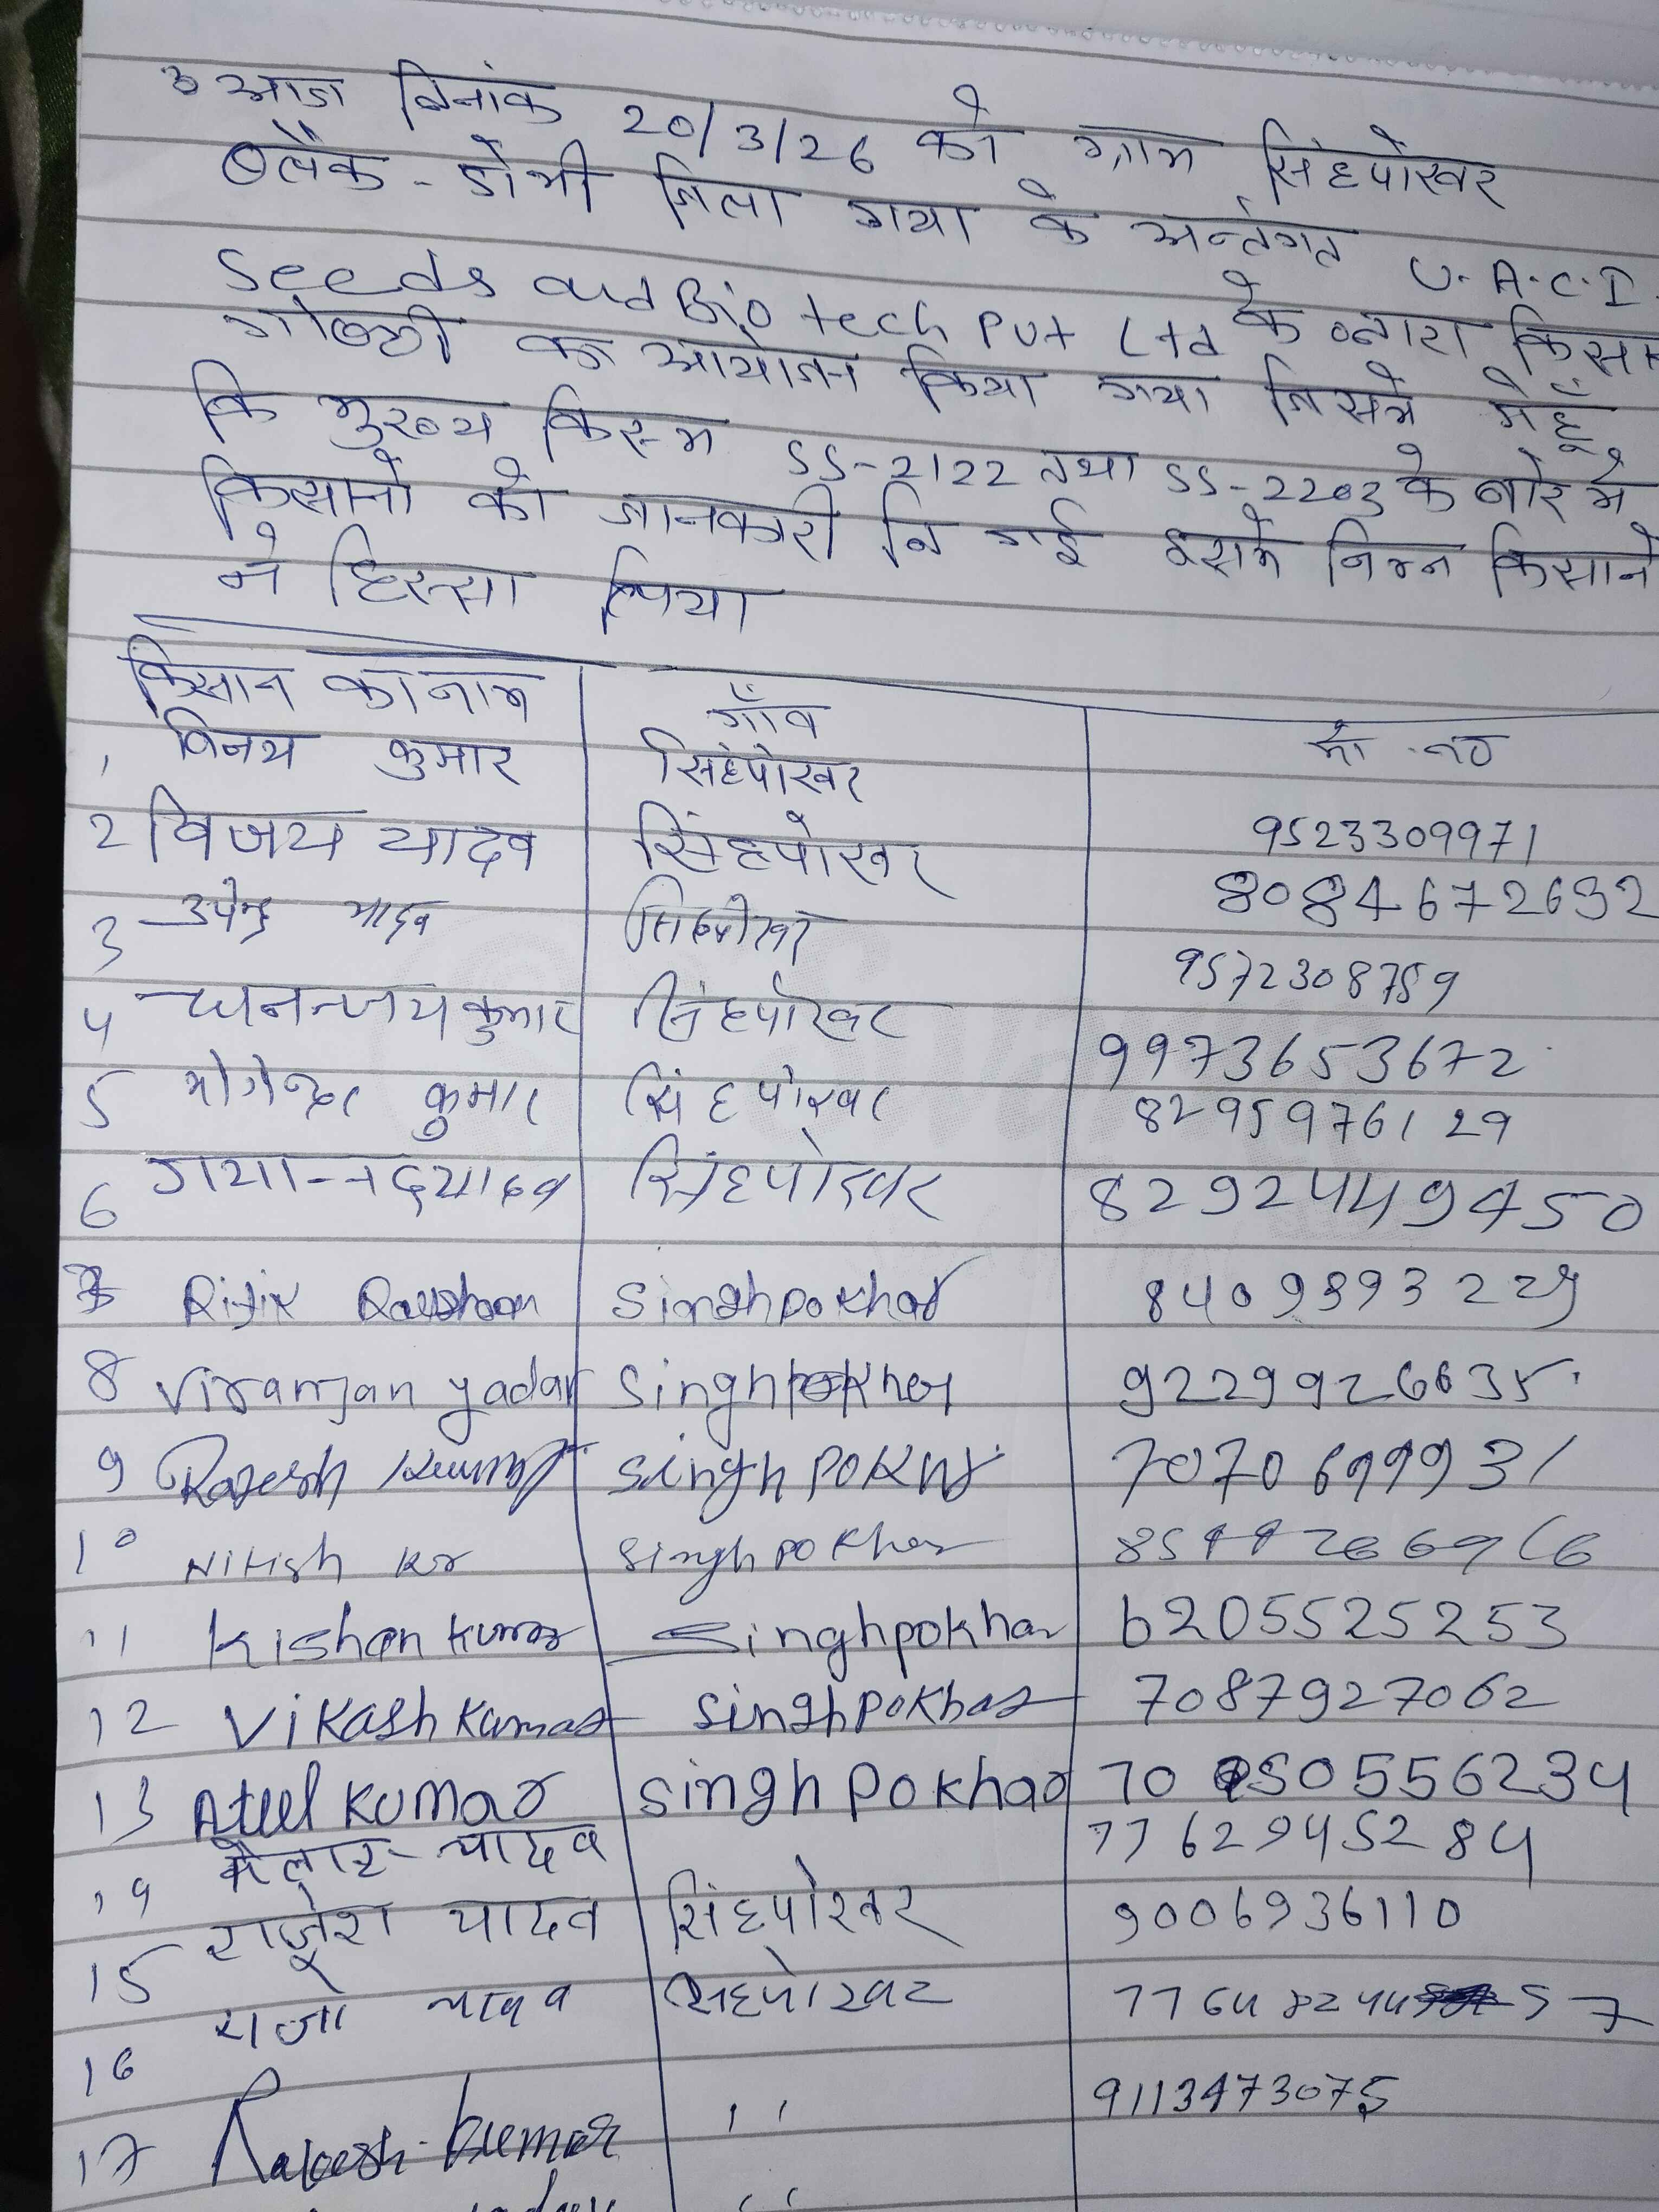 आज दिनांक 20/3/26 को ग्राम सिंहपोखर
ब्लैक - डोभी जिला गया के अर्न्तगत U.A.C.I.
Seeds and Bio tech Put Ltd के द्वारा किसान
गोष्ठी का आयोजन किया गया जिसमे गेहूँ
कि मुख्य किस्म SS-2122 तथा SS-2203 के बारे मे
किसानो को जानकारी दि गई इसमे निम्न किसानो
ने हिस्सा लिया
किसान का नाम गाँव मो. न०
1 विनय कुमार सिंहपोखर 9523309971
2 विजय यादव सिंहपोखर 8084672632
3 उपेन्द्र यादव सिंहपोखर 9572308759
4 धनन्जय कुमार सिंहपोखर 9973653672
5 योगेन्दर कुमार सिंहपोखर 8295976129
6 गयानन्द यादव सिंहपोखर 8292449450
7 Ritik Raushan Singhpokhar 8409393229
8 Viranjan yadav Singhpokhar 9229926635
9 Rajesh Kumar Singhpokhar 7070699931
10 Nitish kr Singhpokhar
11 Kishan kumar Singhpokhar 6205525253
12 Vikash Kumar Singhpokhar 7087927062
13 Atul Kumar Singhpokhar 70 50556234
14 यादव 7762945284
15 राजेश यादव सिंहपोखर 9006936110
16 राजो यादव सिंहपोखर 77648244 57
17 Rakesh kumar ,, 9113473075
,,